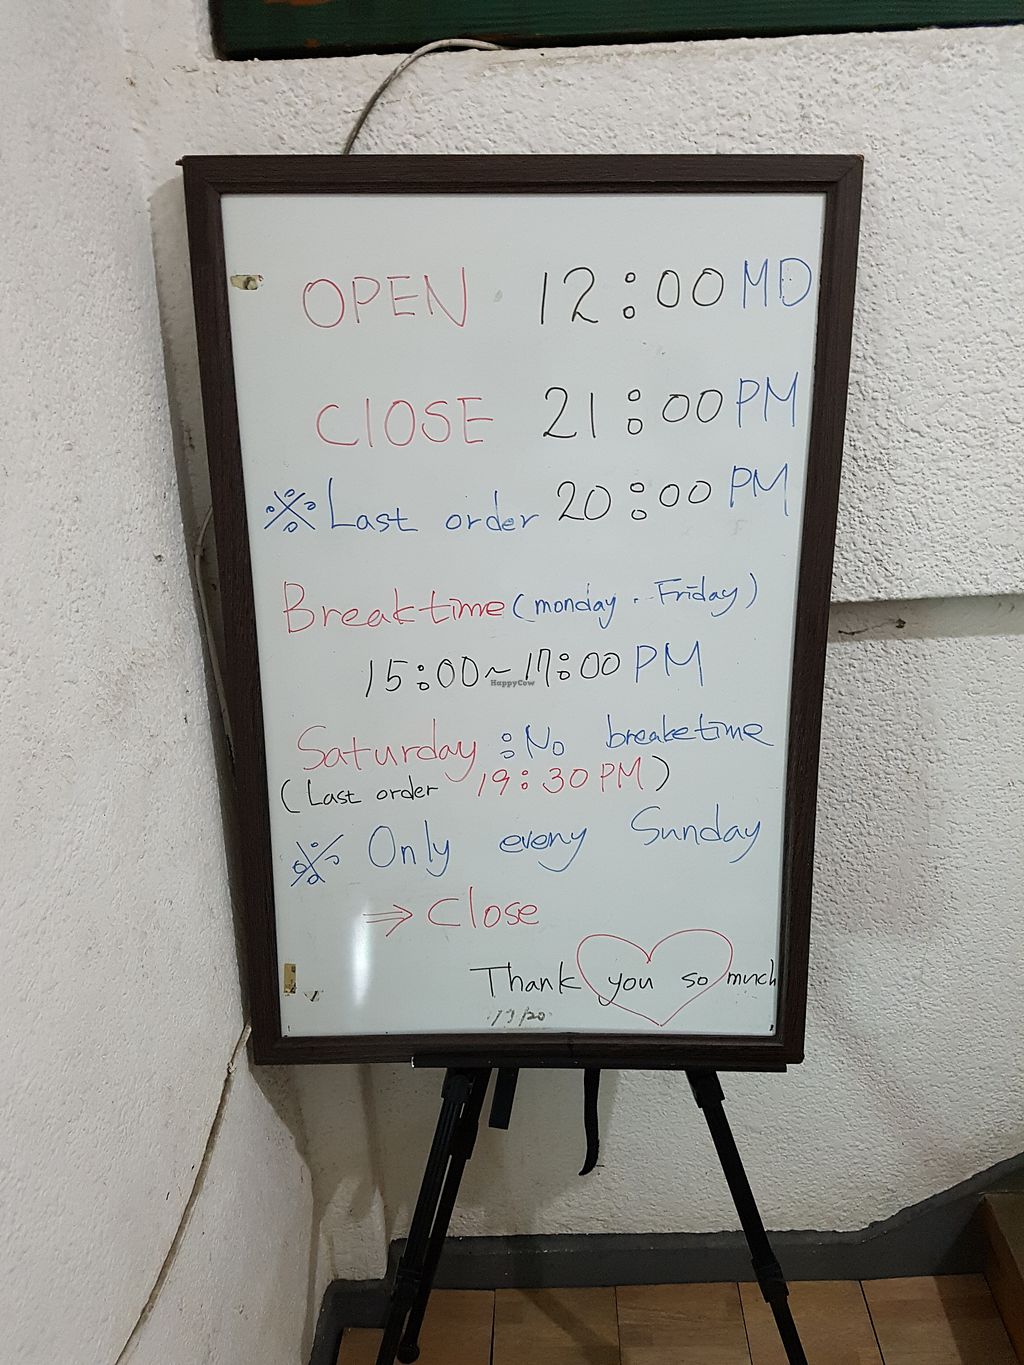 OPEN 12:00 MD
ClOSE 21:00 PM
※ Last order 20:00 PM
Breaktime (monday . Friday)
15:00 ~ 17:00 PM
HappyCow
Saturday : No breaketime
(Last order 19:30 PM)
※ Only every Sunday
⇒ Close
Thank you so much